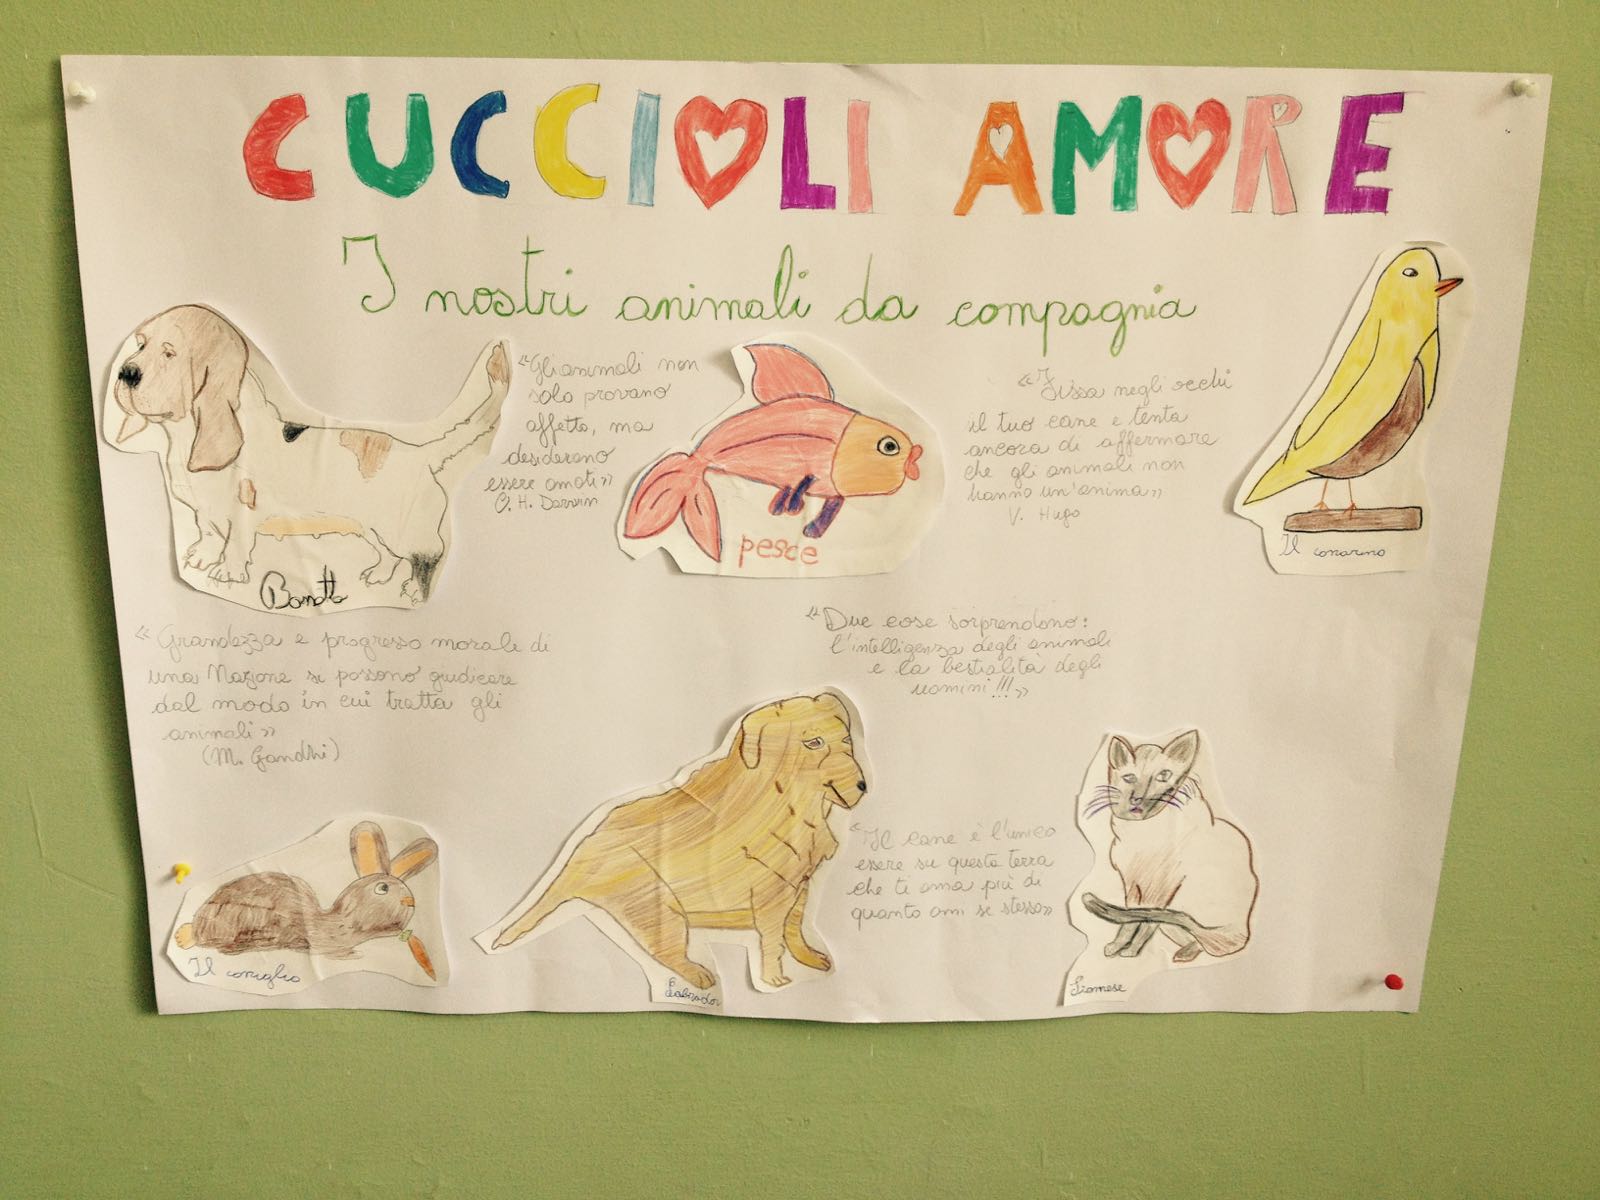 CUCCIOLI AMORE
I nostri animali da compagnia
"Gli animali non
solo provano
affetto, ma
desiderano
essere amati»
C. H. Darwin
pesce
«Fissa negli occhi
il tuo cane e tenta
ancora di affermare
che gli animali non
hanno un'anima»
V. Hugo
Il canarino
«Grandezza e progresso morale di
una Nazione si possono giudicare
dal modo in cui tratta gli
animali»
(M. Gandhi)
«Due cose sorprendono:
l'intelligenza degli animali
e la bestialità degli
uomini!!!»
Il coniglio
Labrador
"Il cane è l'unico
essere su questa terra
che ti ama più di
quanto ami se stesso»
Siamese